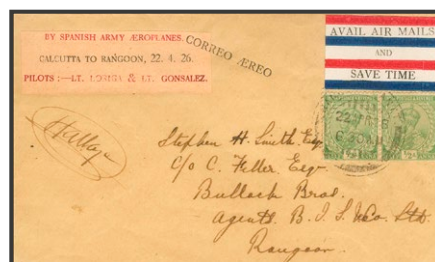 BY SPANISH ARMY ÆROPLANES.
CALCUTTA TO RANGOON, 22. 4. 26.
PILOTS :—LT. LORIGA & LT. GONSALEZ.
CORREO ÆREO
AVAIL AIR MAILS
AND
SAVE TIME
Stephen H. Smith Esqr
C/o C. Feller Esqr
Bullock Bros.
Agents B. I. S. N. Co. Ltd.
Rangoon.